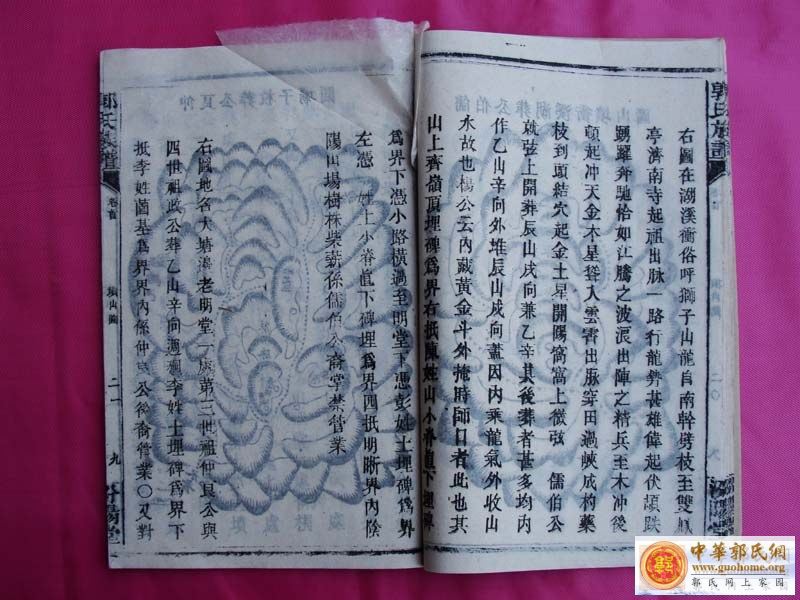 郭氏族譜
右圖在湖溪衝俗呼獅子山龍自南幹劈枝至雙鳳
亭濟南寺起祖出脉一路行龍勢甚雄偉起伏頓跌
踴躍奔馳恰如江騰之波浪出陣之精兵至木冲後
頓起冲天金木星聳入雲霄出脉穿田過峽成杓藥
枝到頭結穴起金土星開陽窩窩上微弦 儒伯公
就弦上開葬辰山戌向兼乙辛其後葬者甚多均內
作乙山辛向外堆辰山戌向蓋因內乘龍氣外收山
水故也楊公云內藏黃金斗外掩時師口者此也其
山上齊嶺頂埋碑為界右抵陳姓山小脊直下埋碑
為界下憑小路橫過至明堂下憑彭姓土埋碑為界
左憑 姓上小脊值下碑埋為界四抵明晰界內陰
陽山場樹林柴薪係儒伯公裔掌禁管業
右圖地名大塘灣老明堂一處第三世祖仲良公與
四世祖政公葬乙山辛向週圍李姓土埋碑為界下
抵李姓菌基為界界內係仲良公後裔管業〇又對
郭氏族譜
卷首
墳山圖
二一
九
中華郭氏網
www.guohome.org
郭氏网上家园